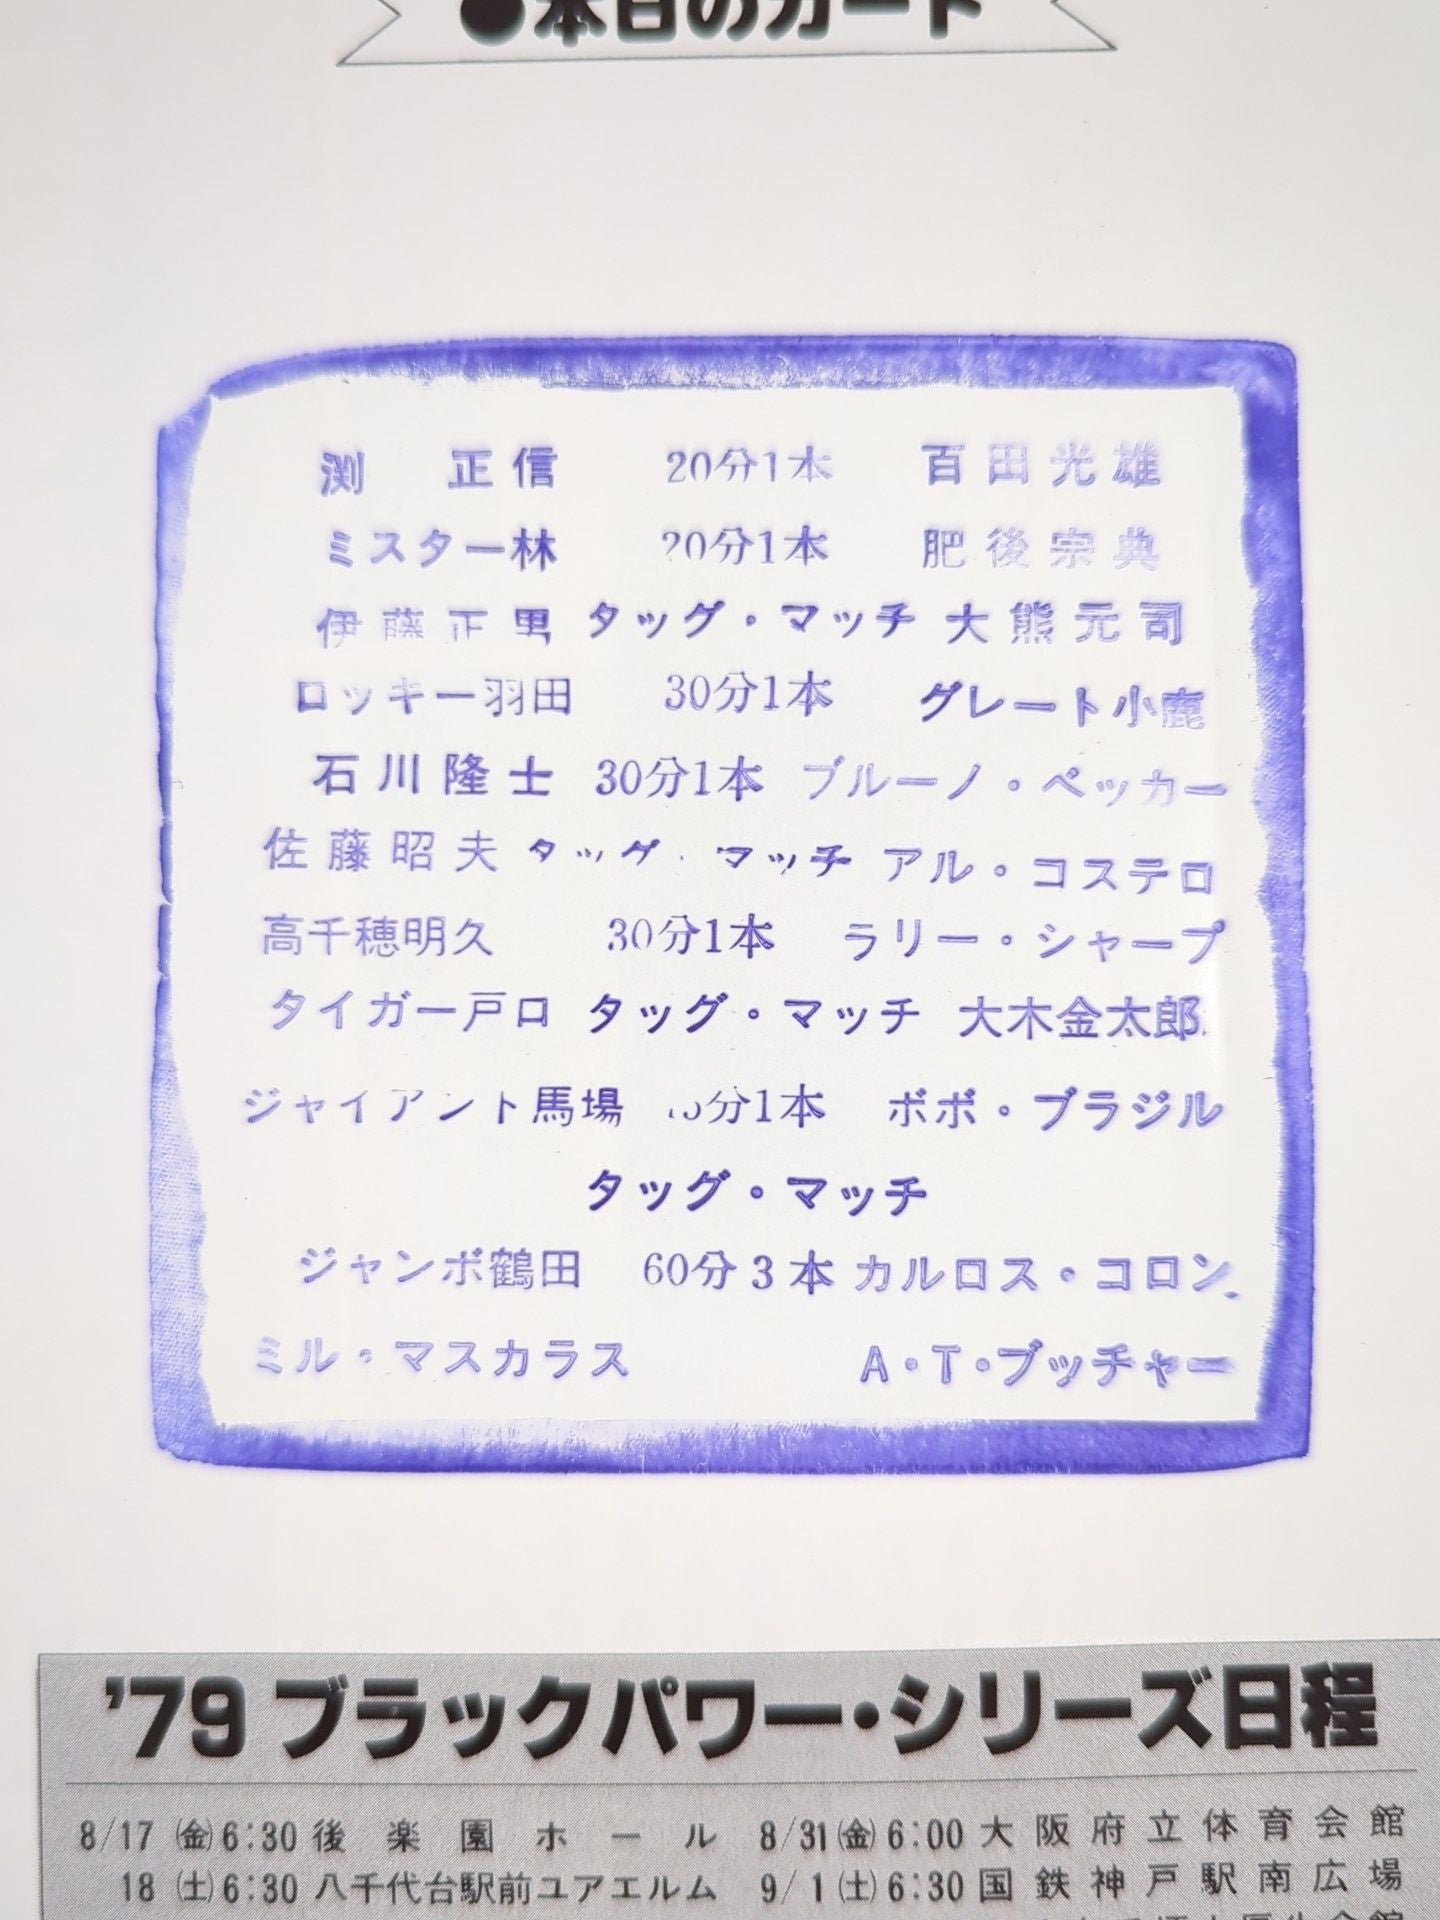 ●本日のカード
渕　正信 20分1本 百田光雄
ミスター林 20分1本 肥後宗典
伊藤正男 タッグ・マッチ 大熊元司
ロッキー羽田 30分1本 グレート小鹿
石川隆士 30分1本 ブルーノ・ベッカー
佐藤昭夫 タッグ・マッチ アル・コステロ
高千穂明久 30分1本 ラリー・シャープ
タイガー戸口 タッグ・マッチ 大木金太郎
ジャイアント馬場 分1本 ボボ・ブラジル
タッグ・マッチ
ジャンボ鶴田 60分3本 カルロス・コロン
ミル・マスカラス A・T・ブッチャー
'79ブラックパワー・シリーズ日程
8/17㈮6:30後楽園ホール 8/31㈮6:00大阪府立体育会館
18㈯6:30八千代台駅前ユアエルム 9/1㈯6:30国鉄神戸駅南広場